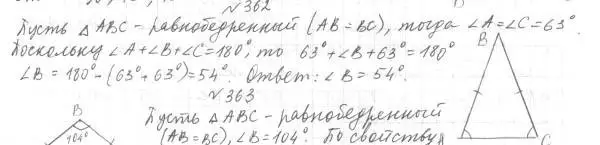 №362
Пусть △ABC - равнобедренный (AB=BC), тогда ∠A=∠C=63°.
Поскольку ∠A+∠B+∠C=180°, то 63°+∠B+63°=180°
∠B=180°-(63°+63°)=54°. Ответ: ∠B=54°.
B
№363
B
104°
Пусть △ABC - равнобедренный
(AB=BC), ∠B=104°. По свойству
C